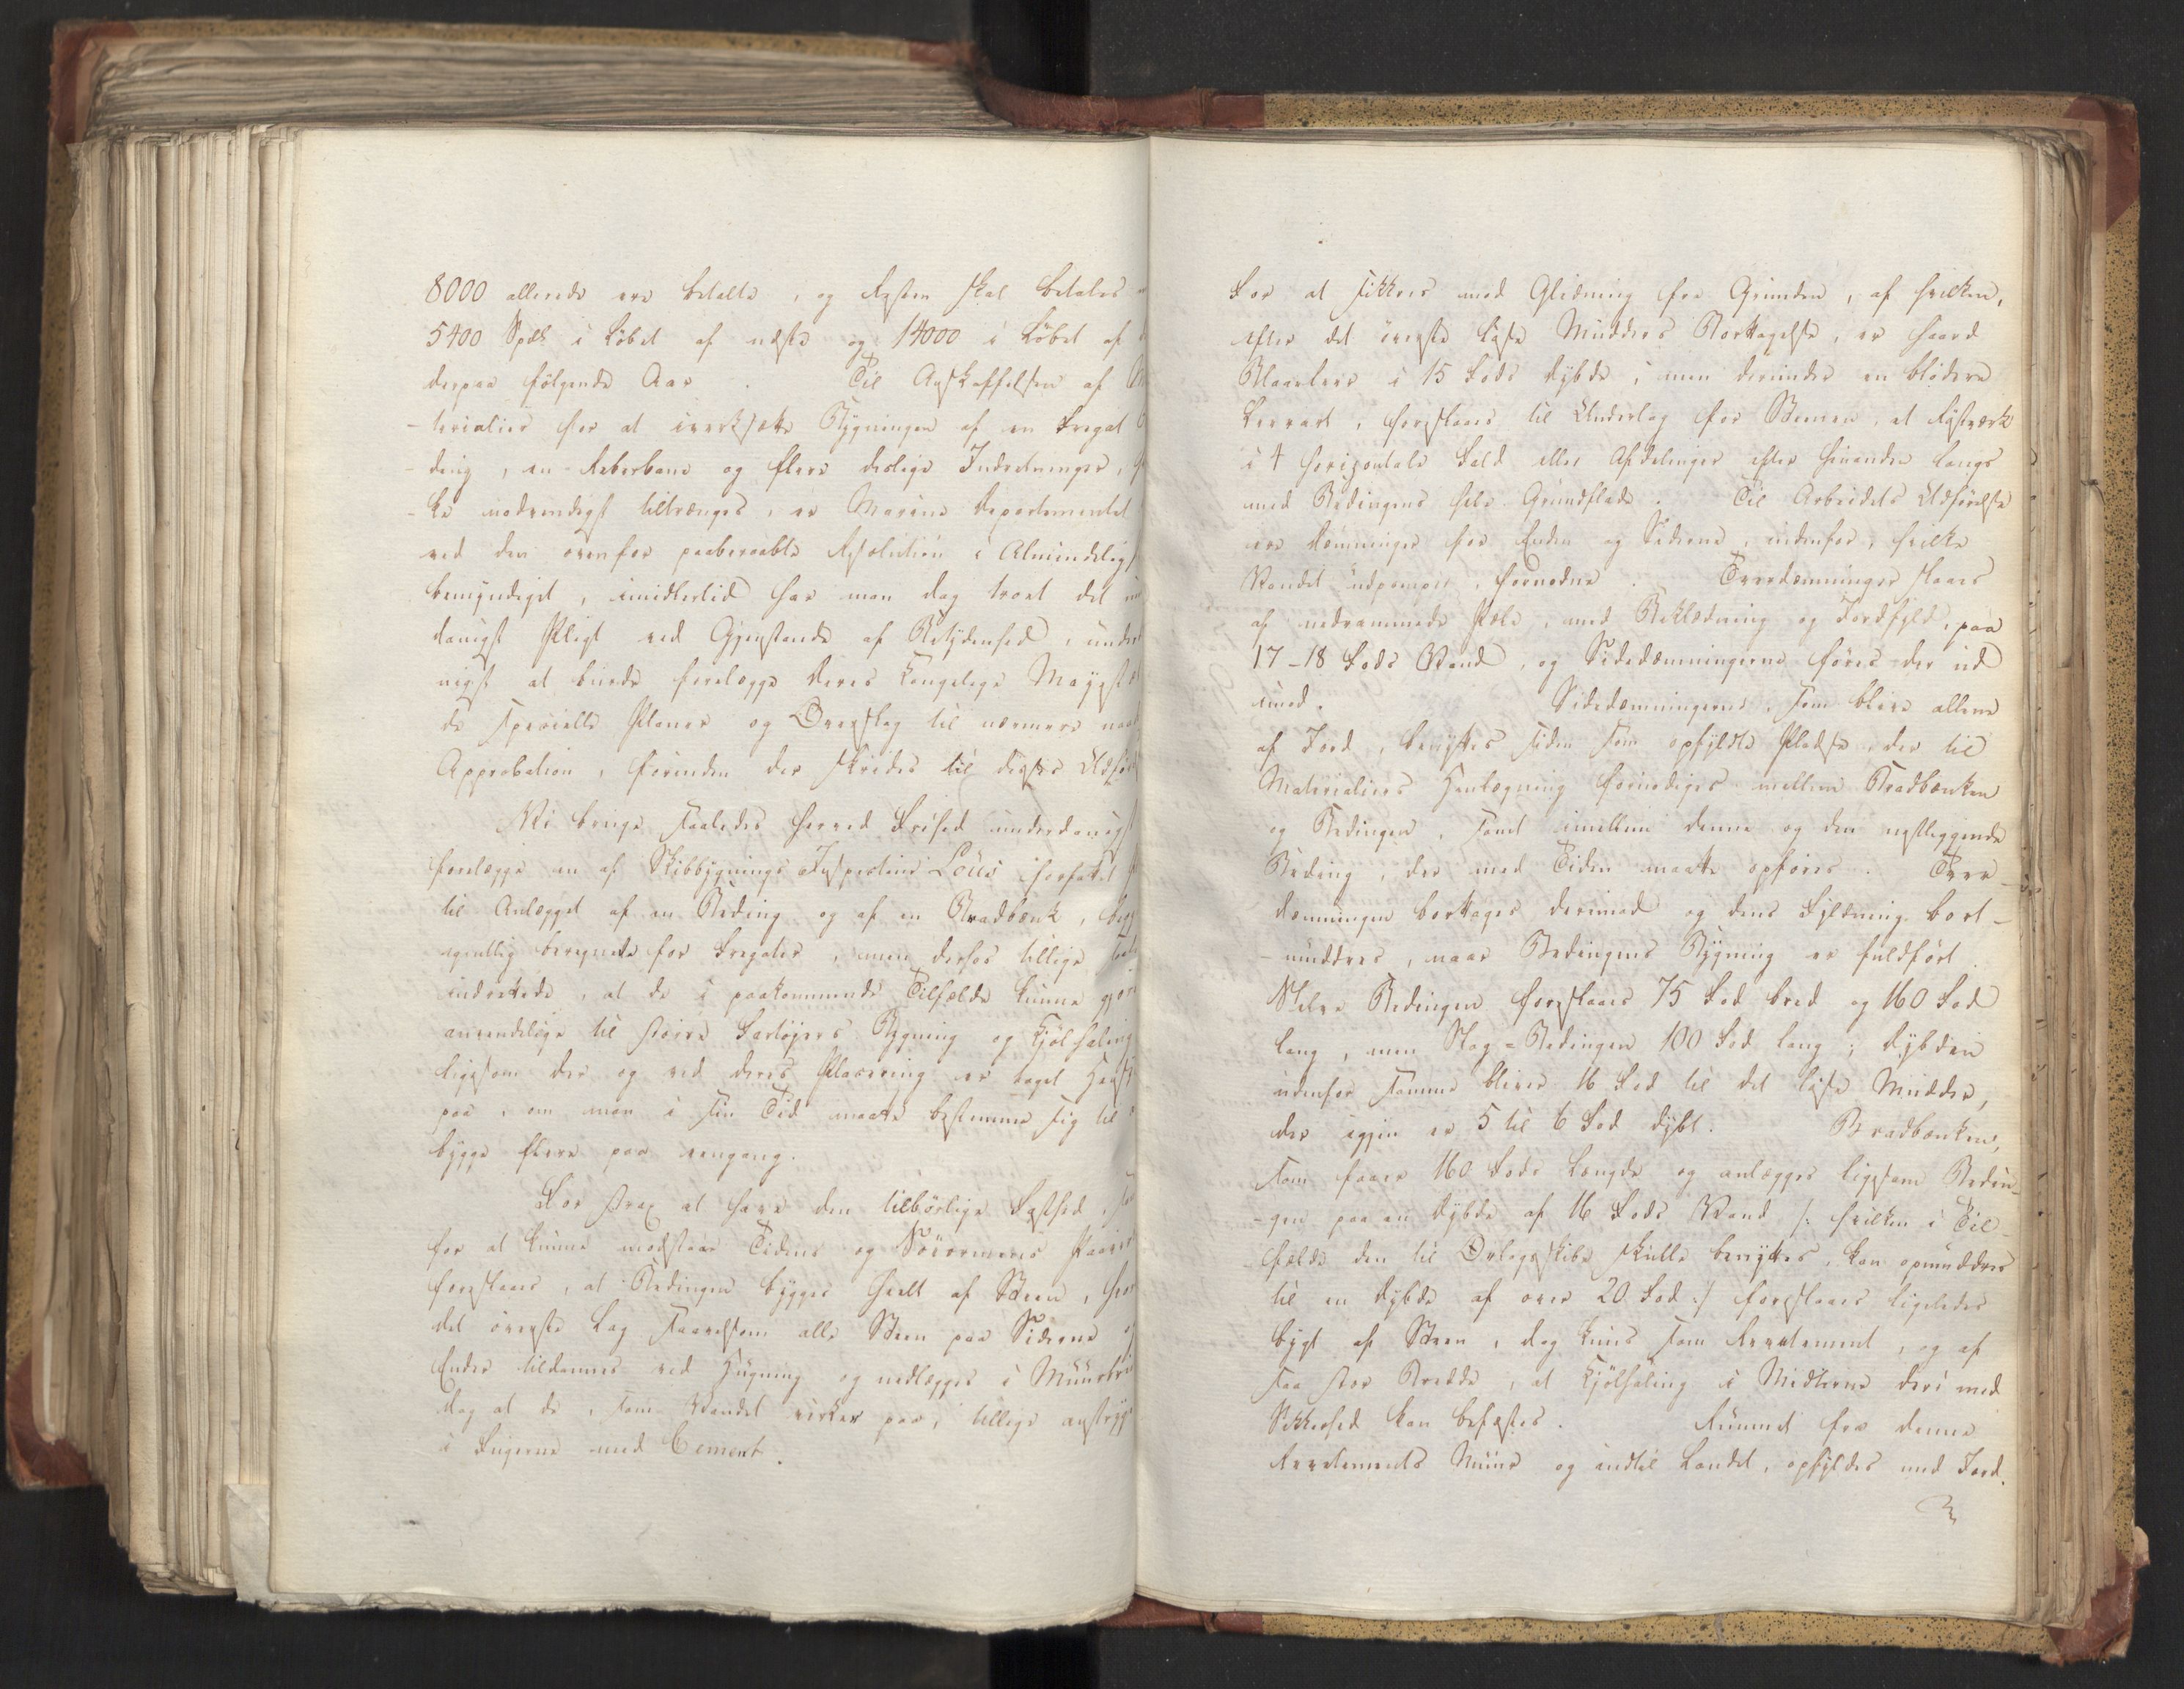 8000 allerede ere betalte, og Resten skal betales
5400 Spd. i Løbet af næste og 14000 i Løbet af
derpaa følgende Aar. Til Anskaffelsen af
-terialier for at iverksætte Bygningen af en Fregat
-ding, en Reberbane og flere deslige Indretninger,
-ke nødvendigst tiltrænges, er Marine Departementet
ved den ovenfor paaberaabte Resolution i Almindelig
bemyndiget, imidlertid har man dog troet det
danigst Pligt ved Gjenstande af Betydenhed, under
nigst at burde forelægge Deres Kongelige Majestæ
de specielle Planer og Overslag til nærmere naad
Approbation, forinden der skrides til disses Udføre
Vi bruge saaledes herved Frihed underdanigst
forelægge en af Skibbygnings Inspecteur Loüs forfattet
til Anlægget af en Beding og af en Bradbænk, begge
egentlig beregnede for Fregatter, men derhos tillige
indrettede, at de i paakommende Tilfælde kunne gjøre
anvendelige til større Fartøiers Bygning og Kjølhaling
ligesom der og ved deres Placering er taget Hensyn
paa, om man i sin Tid maatte bestemme sig til
bygge flere paa eengang.
For strax at have den tilbørlige Fasthed,
for at kunne modstaae Tidens og Søeormenes
foreslaaes, at Bedingen bygges heelt af Steen,
det øverste Lag saavelsom alle Steen paa Siderne
Ender tildannes ved Hugning og nedlægges i
dog at de, som Vandet virker paa, tillige anstryge
i Fugerne med Cement.
For at sikkres mod Glidning fra Grunden, af hvilken,
efter det øverste løse Mudders Borttagelse, er haard
Blaaleer i 15 Fods Dybde, men derunder en blødere
Leerart, foreslaaes til Underlag for Stenen, et Risværk
i 4 horizontale Fald eller Afdelinger efter hinanden langs
med Bedingens hele Grundflade. Til Arbeidets Udførelse
ere Dæmninger for Enden og Siderne, indenfor, hvilke
Vandet udpompes, fornødne. Tverdæmninger slaaes
af nedrammede Pæle, med Beklædning og Jordfyld, paa
17-18 Fods Vand, og Sidedæmningerne føres der ud
imod. Sidedæmningerne, som blive allene
af Jord, benyttes siden som opfyldte Pladse, der til
Materialiers Henlægning fornødiges mellem Bradbænken
og Bedingen, samt imellem denne og den næstliggende
Beding, der med Tiden maatte opføres. Tver-
dæmningen borttages derimod og dens Fyldning bort-
-muddres, naar Bedingens Bygning er fuldført.
Selve Bedingen foreslaaes 75 Fod bred og 160 Fod
lang, men Slag=Bedingen 100 Fod lang; Dybden
udenfor samme bliver 16 Fod til det løse Mudder,
der igjen er 5 til 6 Fod dybt. Bradbænken,
som faaer 160 Fods Længde og anlægges ligesom Bedin-
-gen paa en Dybde af 16 Fods Vand /: hvilken i Til-
fælde den til Orlogsskibe skulle benyttes, kan opmuddres
til en Dybde af over 20 Fod :/ foreslaaes ligeledes
bygt af Steen, dog kuns som Revetement, og af
saa stor Bredde, at Kjølhaling i Midterne deri med
Sikkerhed kan befæstes. Rummet fra denne
Revetements Muur og indtil Landet, opfyldes med Jord.